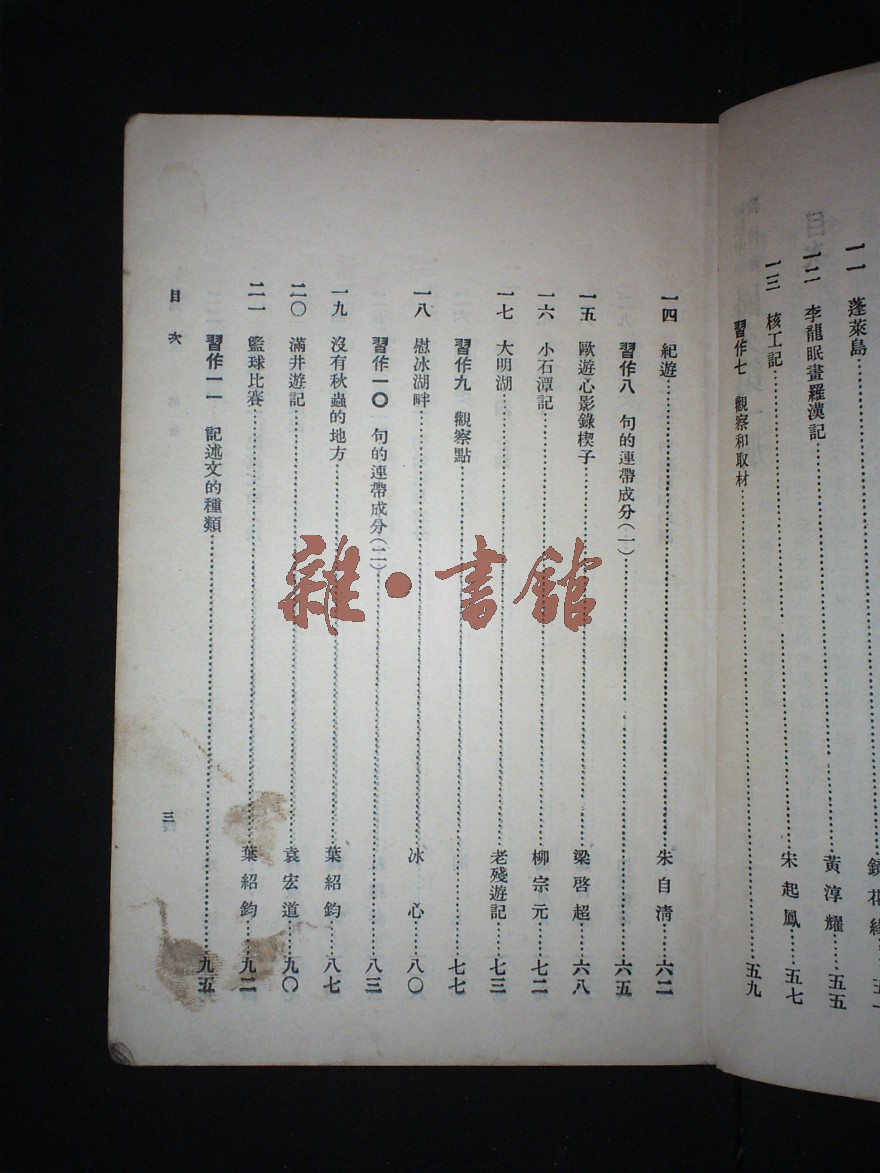 一一 蓬萊島……鏡花緣
一二 李龍眠畫羅漢記……黃淳耀……五五
一三 核工記……宋起鳳……五七
習作七 觀察和取材……五九
一四 紀遊……朱自清……六二
習作八 句的連帶成分(一)……六五
一五 歐遊心影錄楔子……梁啓超……六八
一六 小石潭記……柳宗元……七二
一七 大明湖……老殘遊記……七三
習作九 觀察點……七七
一八 慰冰湖畔……冰心……八〇
習作一〇 句的連帶成分(二)……八三
一九 沒有秋蟲的地方……葉紹鈞……八七
二〇 滿井遊記……袁宏道……九〇
二一 籃球比賽……葉紹鈞……九二
習作一一 記述文的種類……九五
目次 三
雜·書館